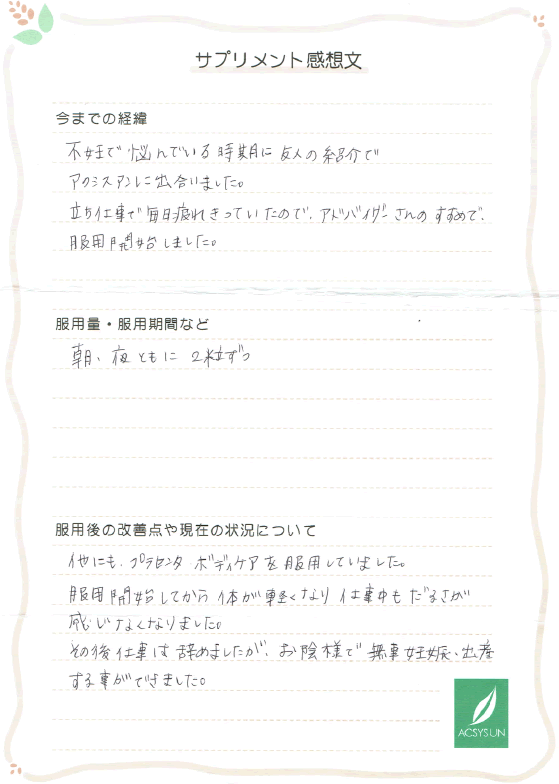 サプリメント感想文
今までの経緯
不妊で悩んでいる時期に友人の紹介で
アクシスアンに出合いました。
立ち仕事で毎日疲れきっていたので、アドバイザーさんのすすめで、
服用開始しました。
服用量・服用期間など
朝、夜ともに2粒ずつ
服用後の改善点や現在の状況について
他にも、プラセンタ ボディケアを服用していました。
服用開始してから体が軽くなり仕事中もだるさが
感じなくなりました。
その後仕事は辞めましたが、お陰様で無事妊娠、出産
する事ができました。
ACSYSUN